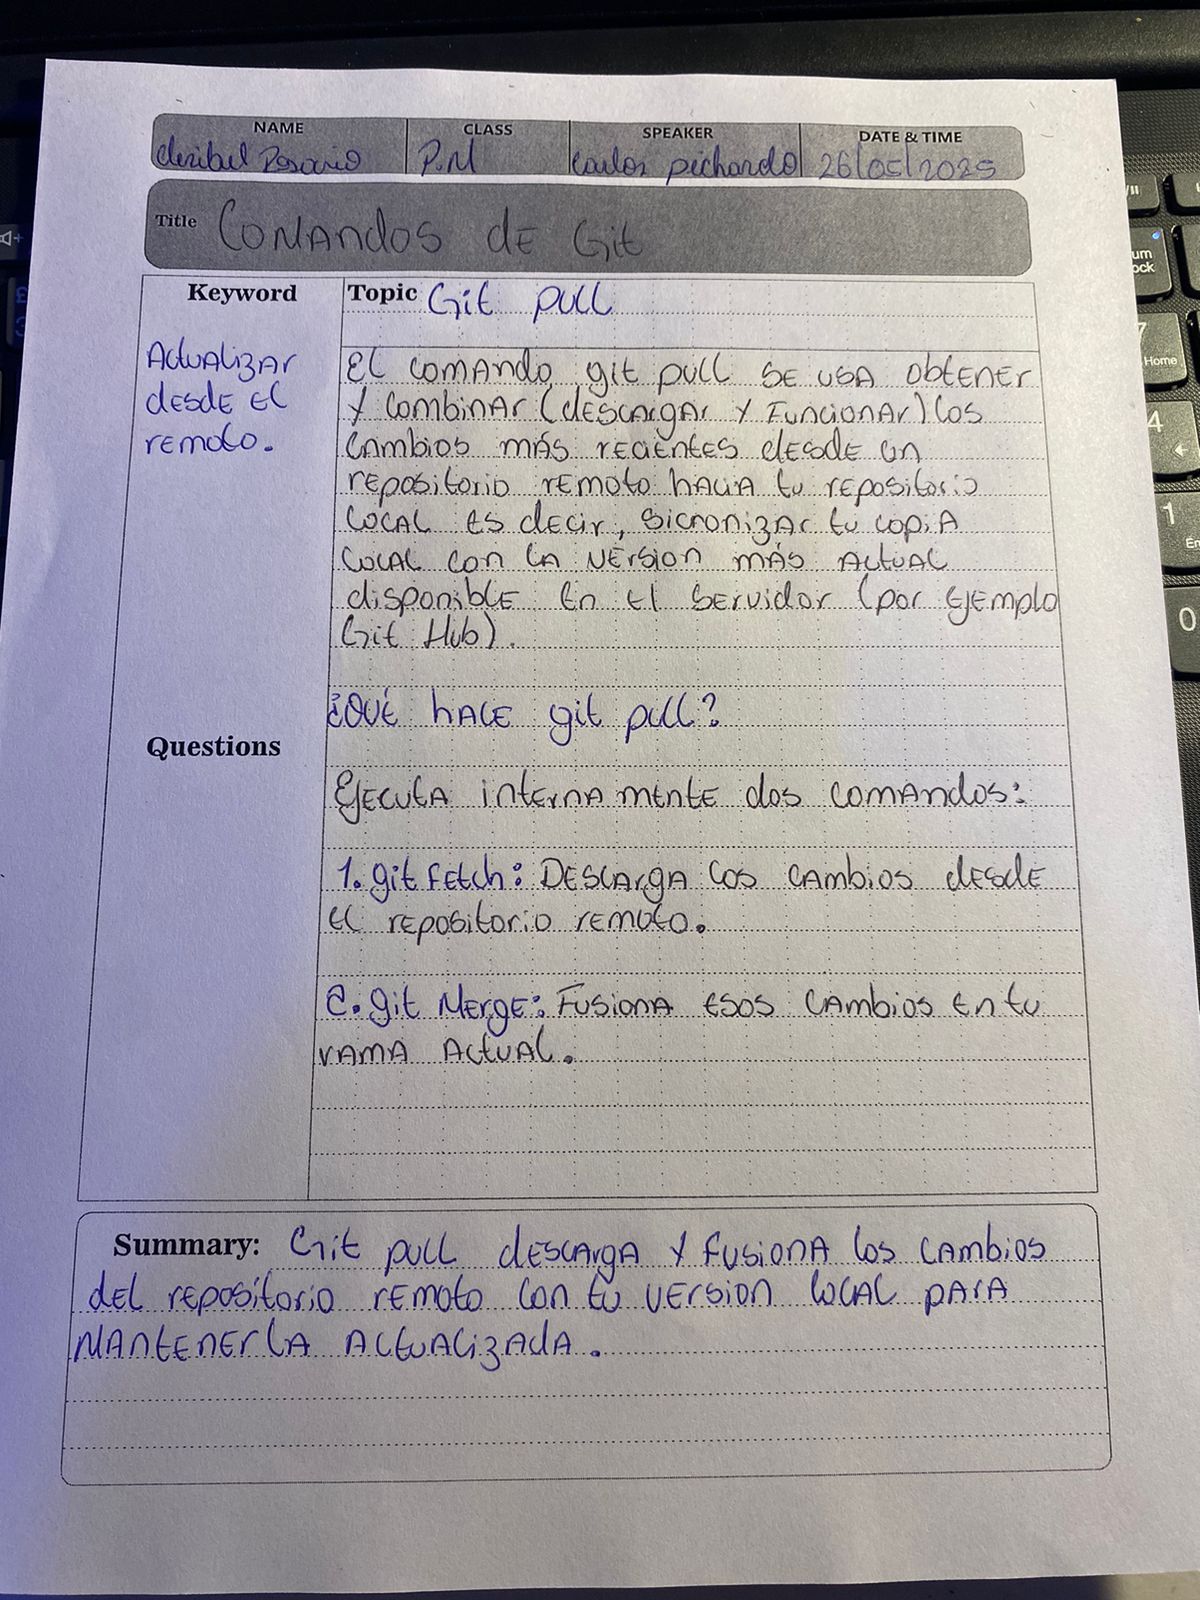 NAME CLASS SPEAKER DATE & TIME
Rosario P.M Carlos pichardo 26/05/2025
Title Comandos de Git
Keyword Topic Git pull
Actualizar
desde el
remoto.
El comando git pull se usa obtener
y combinar (descargar y Funcionar) los
cambios más recientes desde un
repositorio remoto hacia tu repositorio
local es decir, sicronizar tu copia
local con la version más actual
disponible en el servidor (por Ejemplo
Git Hub).
¿Qué hace git pull?
Questions
Ejecuta internamente dos comandos:
1. git fetch: Descarga los cambios desde
el repositorio remoto.
2. git Merge: Fusiona esos cambios en tu
rama actual.
Summary: Git pull descarga y fusiona los cambios
del repositorio remoto con tu version local para
mantenerla actualizada.
+
/II
um
ock
7
Home
4
1
0